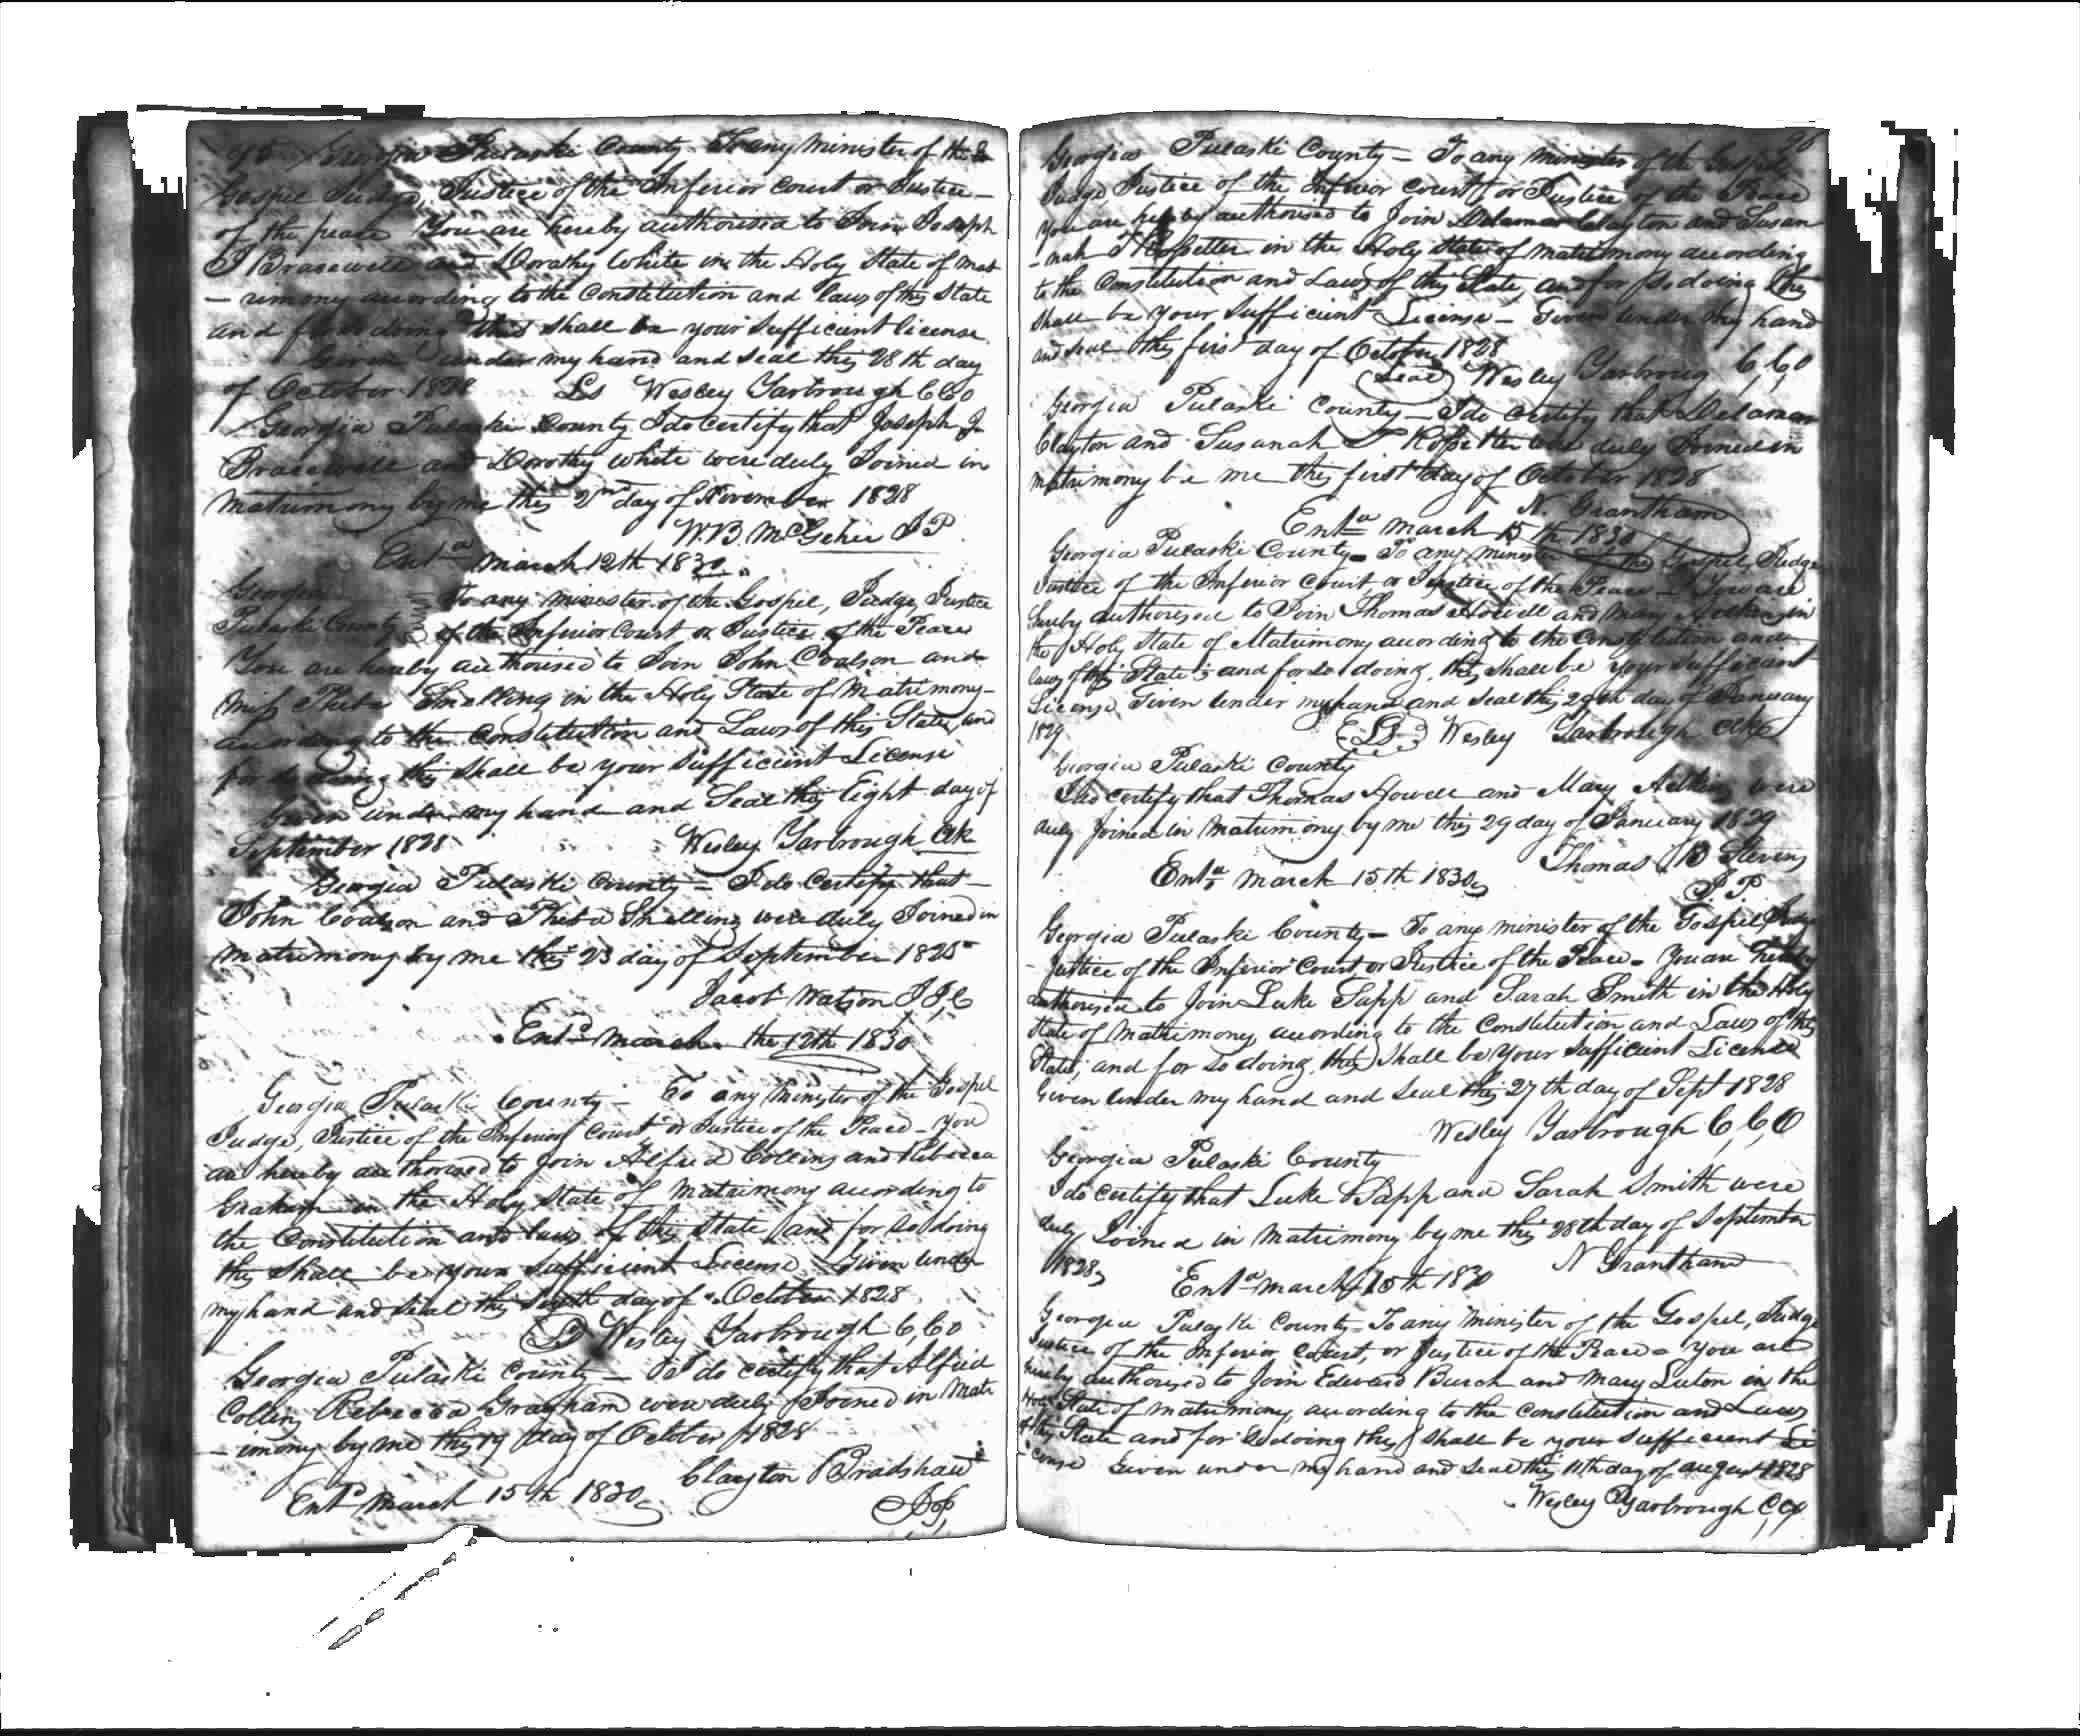 95 Georgia Pulaski County To any Minister of the
Gospel Judge, Justice of the Inferior Court or Justice —
of the peace You are hereby authorised to Join Joseph
J Brasewell and Dorathy White in the Holy State of mat
- rimony according to the Constitution and laws of this State
and for so doing this shall be your sufficient license
Given under my hand and seal this 28th day
of October 1828 Ls Wesley Yarbrough CCO
Georgia Pulaski County I do Certify that Joseph J
Brasewell and Dorothy white were duly Joined in
matrimony by me this 2nd day of November 1828
W.B. McGehee JP
Entd March 12th 1830
Georgia To any minister of the Gospel, Judge, Justice
Pulaski County of the Inferior Court or Justice of the Peace
You are hereby authorised to Join John Coalson and
Miss Theba Snelling in the Holy State of Matrimony —
according to the Constitution and Laws of this State, and
for so doing this shall be your sufficient License
Given under my hand and Seal this Eight day of
September 1828 Wesley Yarbrough Clk
Georgia Pulaski County — I do Certify that —
John Coalson and Theba Snelling were duly Joined in
matrimony by me this 23 day of September 1828
Jacob Watson J I C
Entd March the 12th 1830
Georgia Pulaski County — To any Minister of the Gospel
Judge, Justice of the Inferior Court or Justice of the Peace — You
are hereby authorised to Join Alfred Collins and Rebecca
Graham in the Holy State of Matrimony according to
the Constitution and laws of this State and for so doing
this shall be your sufficient License Given under
my hand and seal this day of October 1828
Wesley Yarbrough C,CO
Georgia Pulaski County — I do certify that Alfred
Collins Rebecca Grayham were duly Joined in Mate
- imony by me this 19 day of October 1828
Clayton Bradshaw
Entd March 15th 1830 JP
96
Georgia Pulaski County — To any minister of the Gospel
Judge Justice of the Inferior Court or Justice of the Peace
you are hereby authorised to Join Delamar Clayton and Susan
- nah T Rossetter in the Holy State of matrimony according
to the Constitution and Laws of this State, and for so doing this
shall be your sufficient License — Given under my hand
and seal this first day of October 1828
Seal Wesley Yarbroug C,C,O
Georgia Pulaski County — I do certify that Delamar
Clayton and Susanah T Rossetter were duly Joined in
matrimony be me this first day of October 1828
N. Grantham
Entd March 15th 1830
Georgia Pulaski County — To any minister of the Gospel, Judge
Justice of the Inferior Court, or Justice of the Peace — You are
hereby authorised to Join Thomas Howell and Mary in
the Holy State of Matrimony according to the Constitution and
laws of this State; and for so doing, this shall be your sufficient
License Given under my hand and seal this 29th day of January
1829 LS Wesley Yarbrough Clk
Georgia Pulaski County
I do certify that Thomas Howell and Mary were
duly Joined in Matrimony by me this 29 day of January 1829
Thomas B Stevens
Entd March 15th 1830 J.P.
Georgia Pulaski County — To any minister of the Gospel, Judge
Justice of the Inferior Court, or Justice of the Peace — You are hereby
authorised to Join Luke Sapp and Sarah Smith in the Holy
State of Matrimony, according to the Constitution, and Laws of this
State; and for so doing, this shall be your sufficient License
Given under my hand and seal this 27th day of Sept 1828
Wesley Yarbrough C,C,O
Georgia Pulaski County
I do certify that Luke Sapp and Sarah Smith were
duly Joined in Matrimony by me this 28th day of September
1828, N Grantham
Entd March 15th 1830
Georgia Pulaski County — To any Minister of the Gospel, Judge
Justice of the Inferior Court, or Justice of the Peace — you are
hereby authorised to Join Edward Burch and Mary Luton in the
Holy State of matrimony, according to the constitution and Laws
of this State and for so doing this shall be your sufficient Li
- cense Given under my hand and seal this 11th day of august 1828
Wesley Yarbrough C,C,O